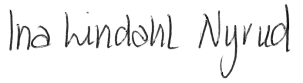 Ina Lindahl Nyrud